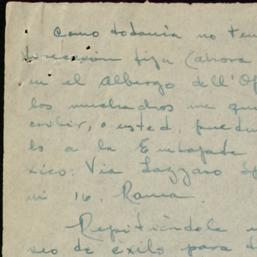 Como todavía no ten
dirección fija (ahora
en el Albergo dell'Of
los muchachos me qu
cribir, o usted, puedu
ls a la Embajada
xico: Via Lazzaro Sp
ni 16. Roma.
Repitiéndole
seo de exito para